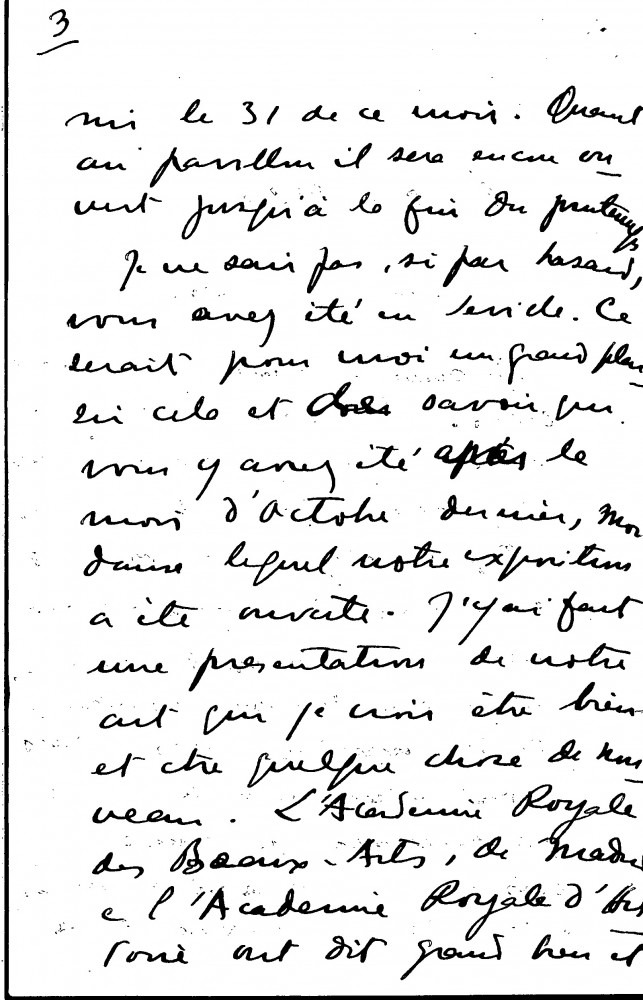 3
mis le 31 de ce mois. Quant
au pavillon il sera encore ou
vert jusqu'à la fin du printemps
Je ne sais pas, si par hasard,
vous avez été en Seville. Ce
serait pour moi un grand plai
sir cela et savoir que
vous y avez été après le
mois d'Octobre dernier, mois
dans lequel notre exposition
a été ouverte. J'y ai fait
une presentation de notre
art que je crois être bien
et être quelque chose de nou
veau. L'Academie Royale
des Beaux-Arts, de Madrid
e l'Academie Royale d'His
toire ont dit grand bien et